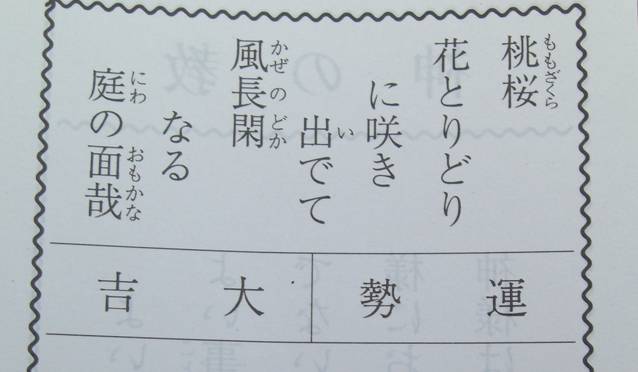 桃桜
ももざくら
花とりどり
に咲き
出でて
い
風長閑
かぜのどか
なる
庭の面哉
にわ おもかな
運勢
大吉